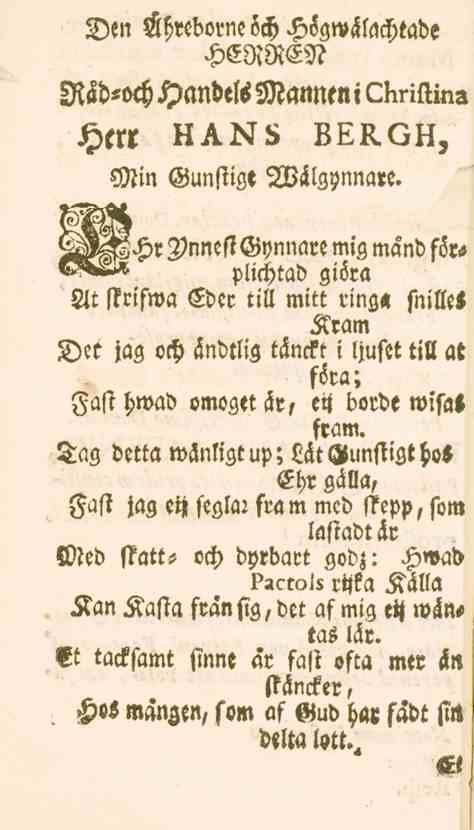 Den Ähreborne öch Högwälachtade
HERREN
Råd-och Handels Mannen i Christina
Herr HANS BERGH,
Min Gunstige Wälgynnare.
EHr Ynnest Gynnare mig månd för-
plichtad giöra
At skrifwa Eder till mitt ringa snilles
Kram
Det jag och ändtlig tänckt i ljuset till at
föra;
Fast hwad omoget är, eij borde wisas
fram.
Tag detta wänligt up; Lät Gunstigt hos
Ehr gälla,
Fast jag eij seglar fram med skepp, som
lastadt är
Med skatt- och dyrbart godz: Hwad
Pactols rijka Källa
Kan Kasta från sig, det af mig eij wän-
tas lär.
Et tacksamt sinne är fast ofta mer än
skäncker,
Hos mången, som af Gud har fådt sin
delta lott.
Et